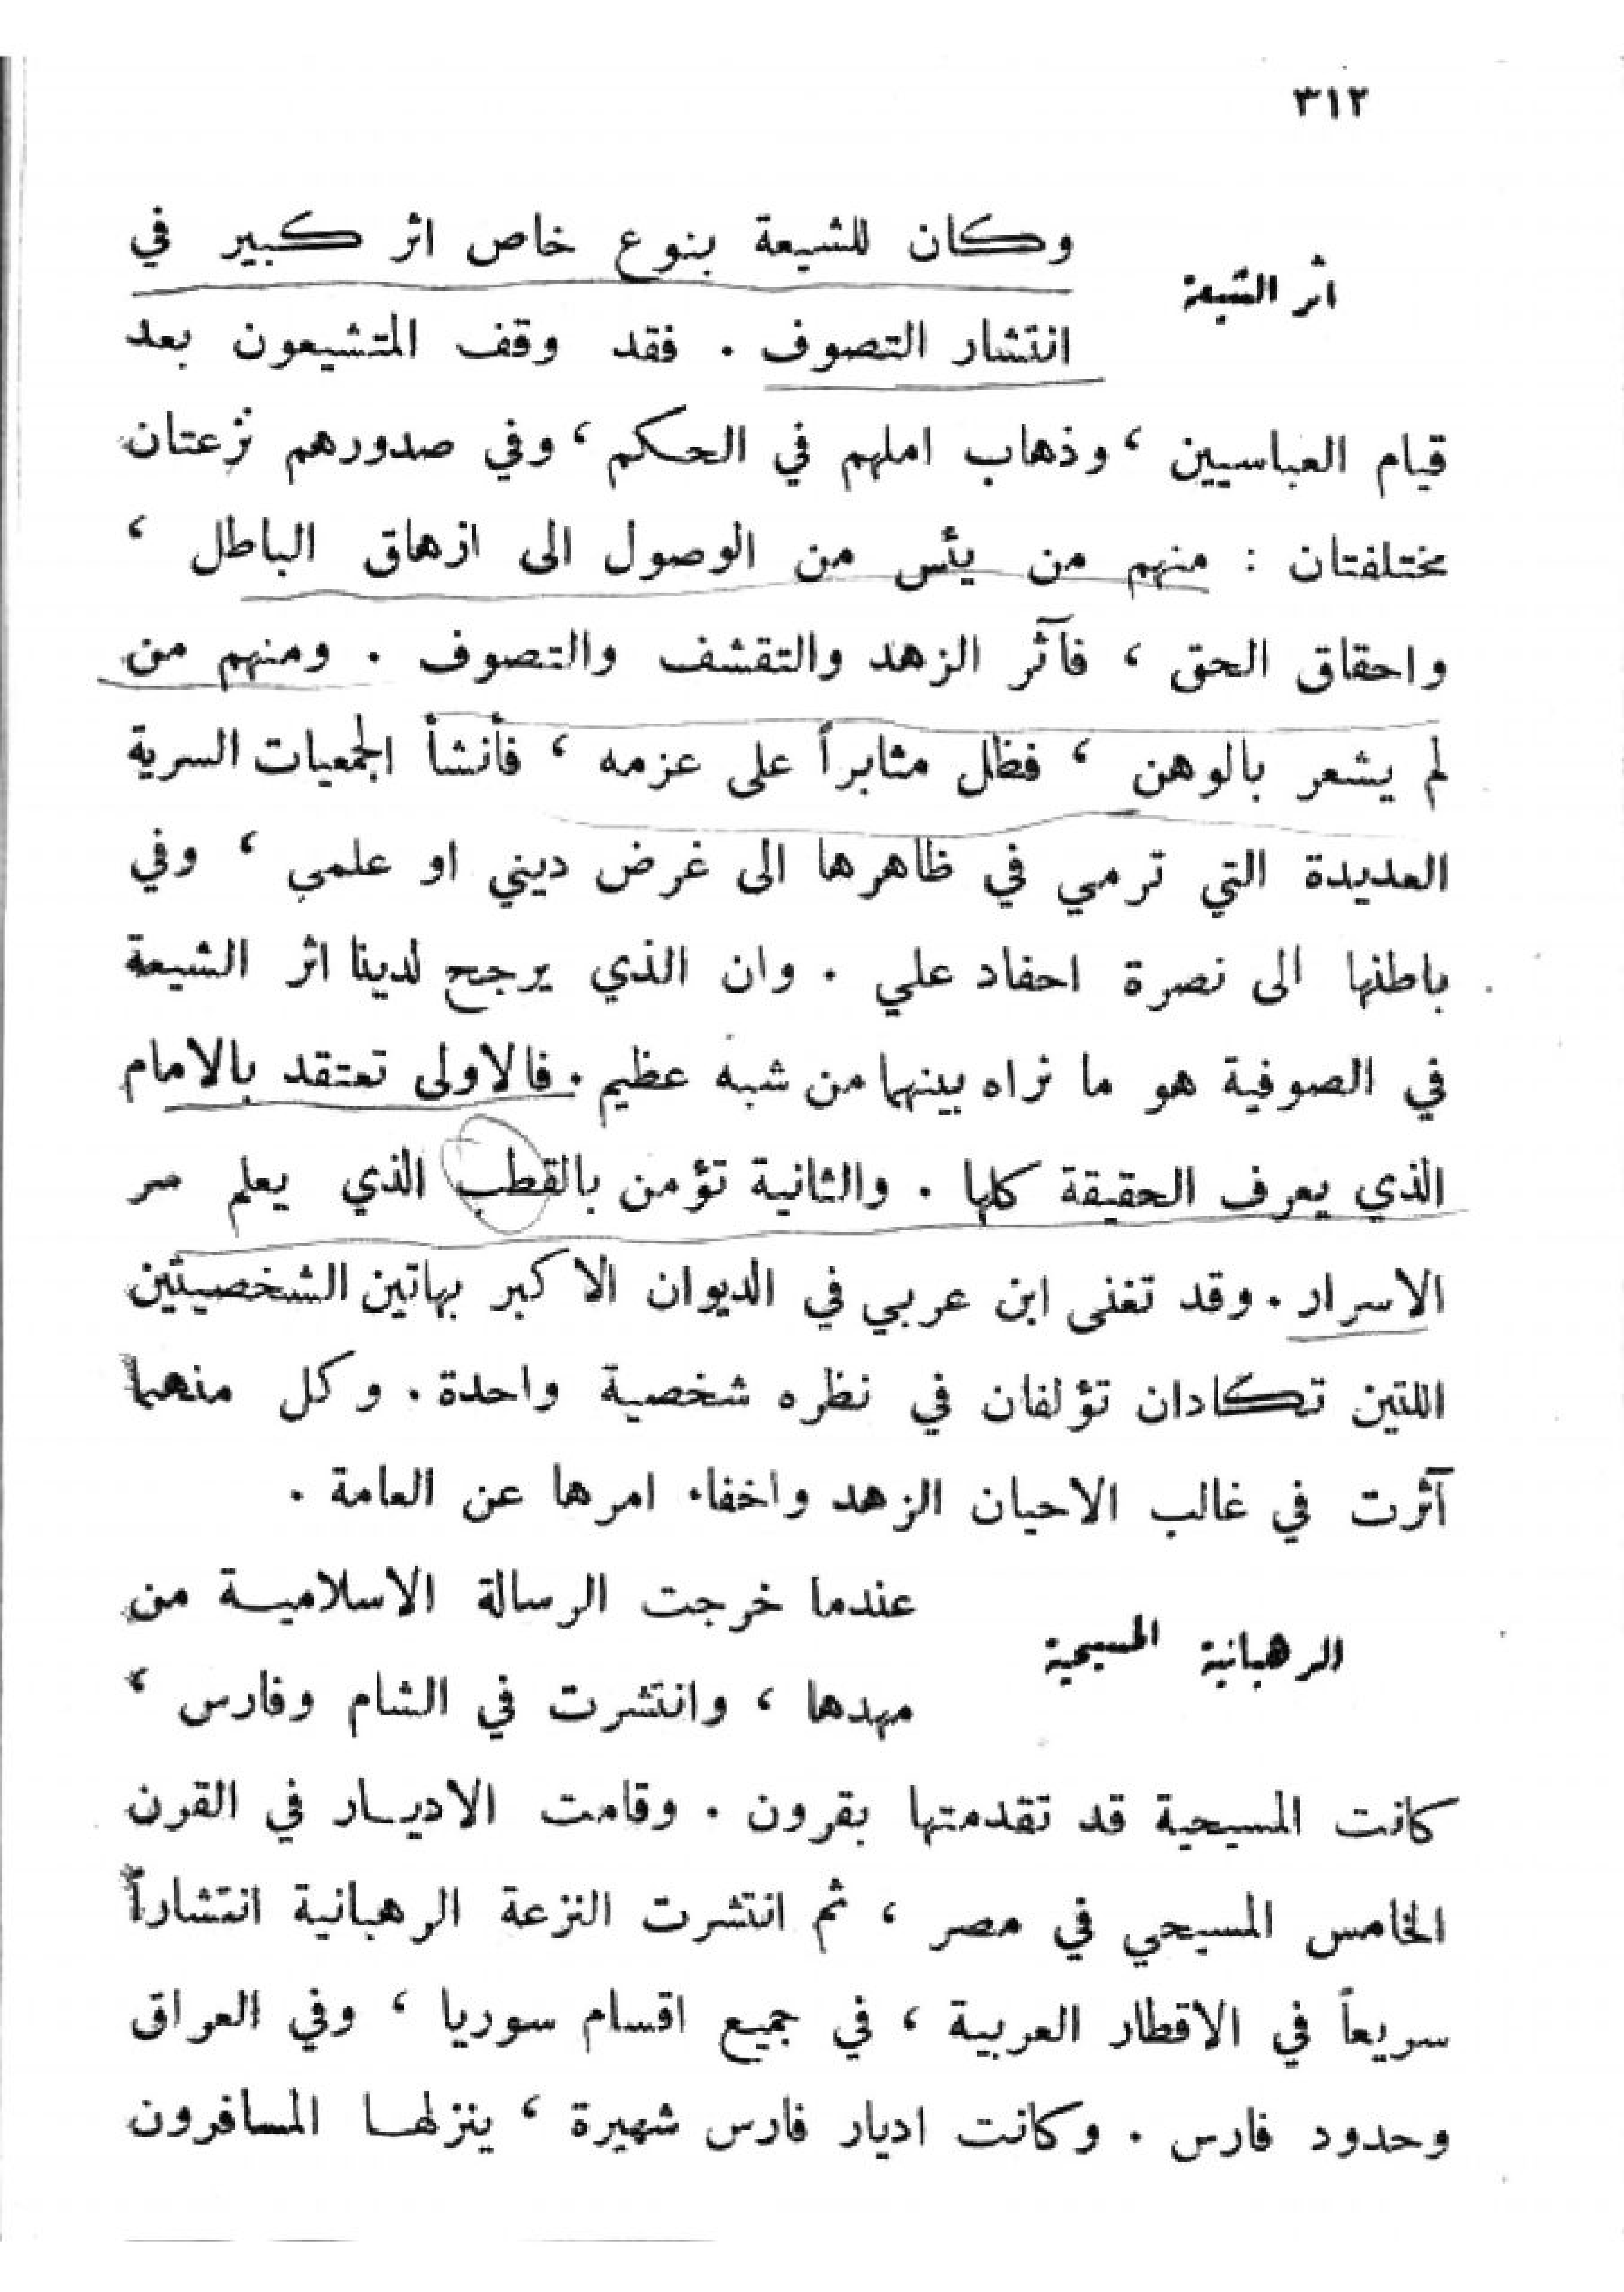 ٣١٢
اثر الشيعة
وكان للشيعة بنوع خاص اثر كبير في
انتشار التصوف . فقد وقف المتشيعون بعد
قيام العباسيين ، وذهاب املهم في الحكم ، وفي صدورهم نزعتان
مختلفتان : منهم من يئس من الوصول الى ازهاق الباطل ،
واحقاق الحق ، فآثر الزهد والتقشف والتصوف . ومنهم من
لم يشعر بالوهن ، فظل مثابراً على عزمه ، فأنشأ الجمعيات السرية
العديدة التي ترمي في ظاهرها الى غرض ديني او علمي ، وفي
باطنها الى نصرة احفاد علي . وان الذي يرجح لدينا اثر الشيعة
في الصوفية هو ما نراه بينهما من شبه عظيم . فالاولى تعتقد بالامام
الذي يعرف الحقيقة كلها . والثانية تؤمن بالقطب الذي يعلم سر
الاسرار . وقد تغنى ابن عربي في الديوان الاكبر بهاتين الشخصيتين
اللتين تكادان تؤلفان في نظره شخصية واحدة . وكل منهما
آثرت في غالب الاحيان الزهد واخفاء امرها عن العامة .
الرهبانية المسيحية
عندما خرجت الرسالة الاسلامية من
مهدها ، وانتشرت في الشام وفارس ،
كانت المسيحية قد تقدمتها بقرون . وقامت الاديار في القرن
الخامس المسيحي في مصر ، ثم انتشرت النزعة الرهبانية انتشاراً
سريعاً في الاقطار العربية ، في جميع اقسام سوريا ، وفي العراق
وحدود فارس . وكانت اديار فارس شهيرة ، ينزلها المسافرون